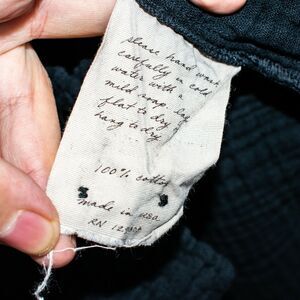 please hand wash
carefully in cold
water with a
mild soap. lay
flat to dry or
hang to dry.
100% cotton
S S
made in usa
RN